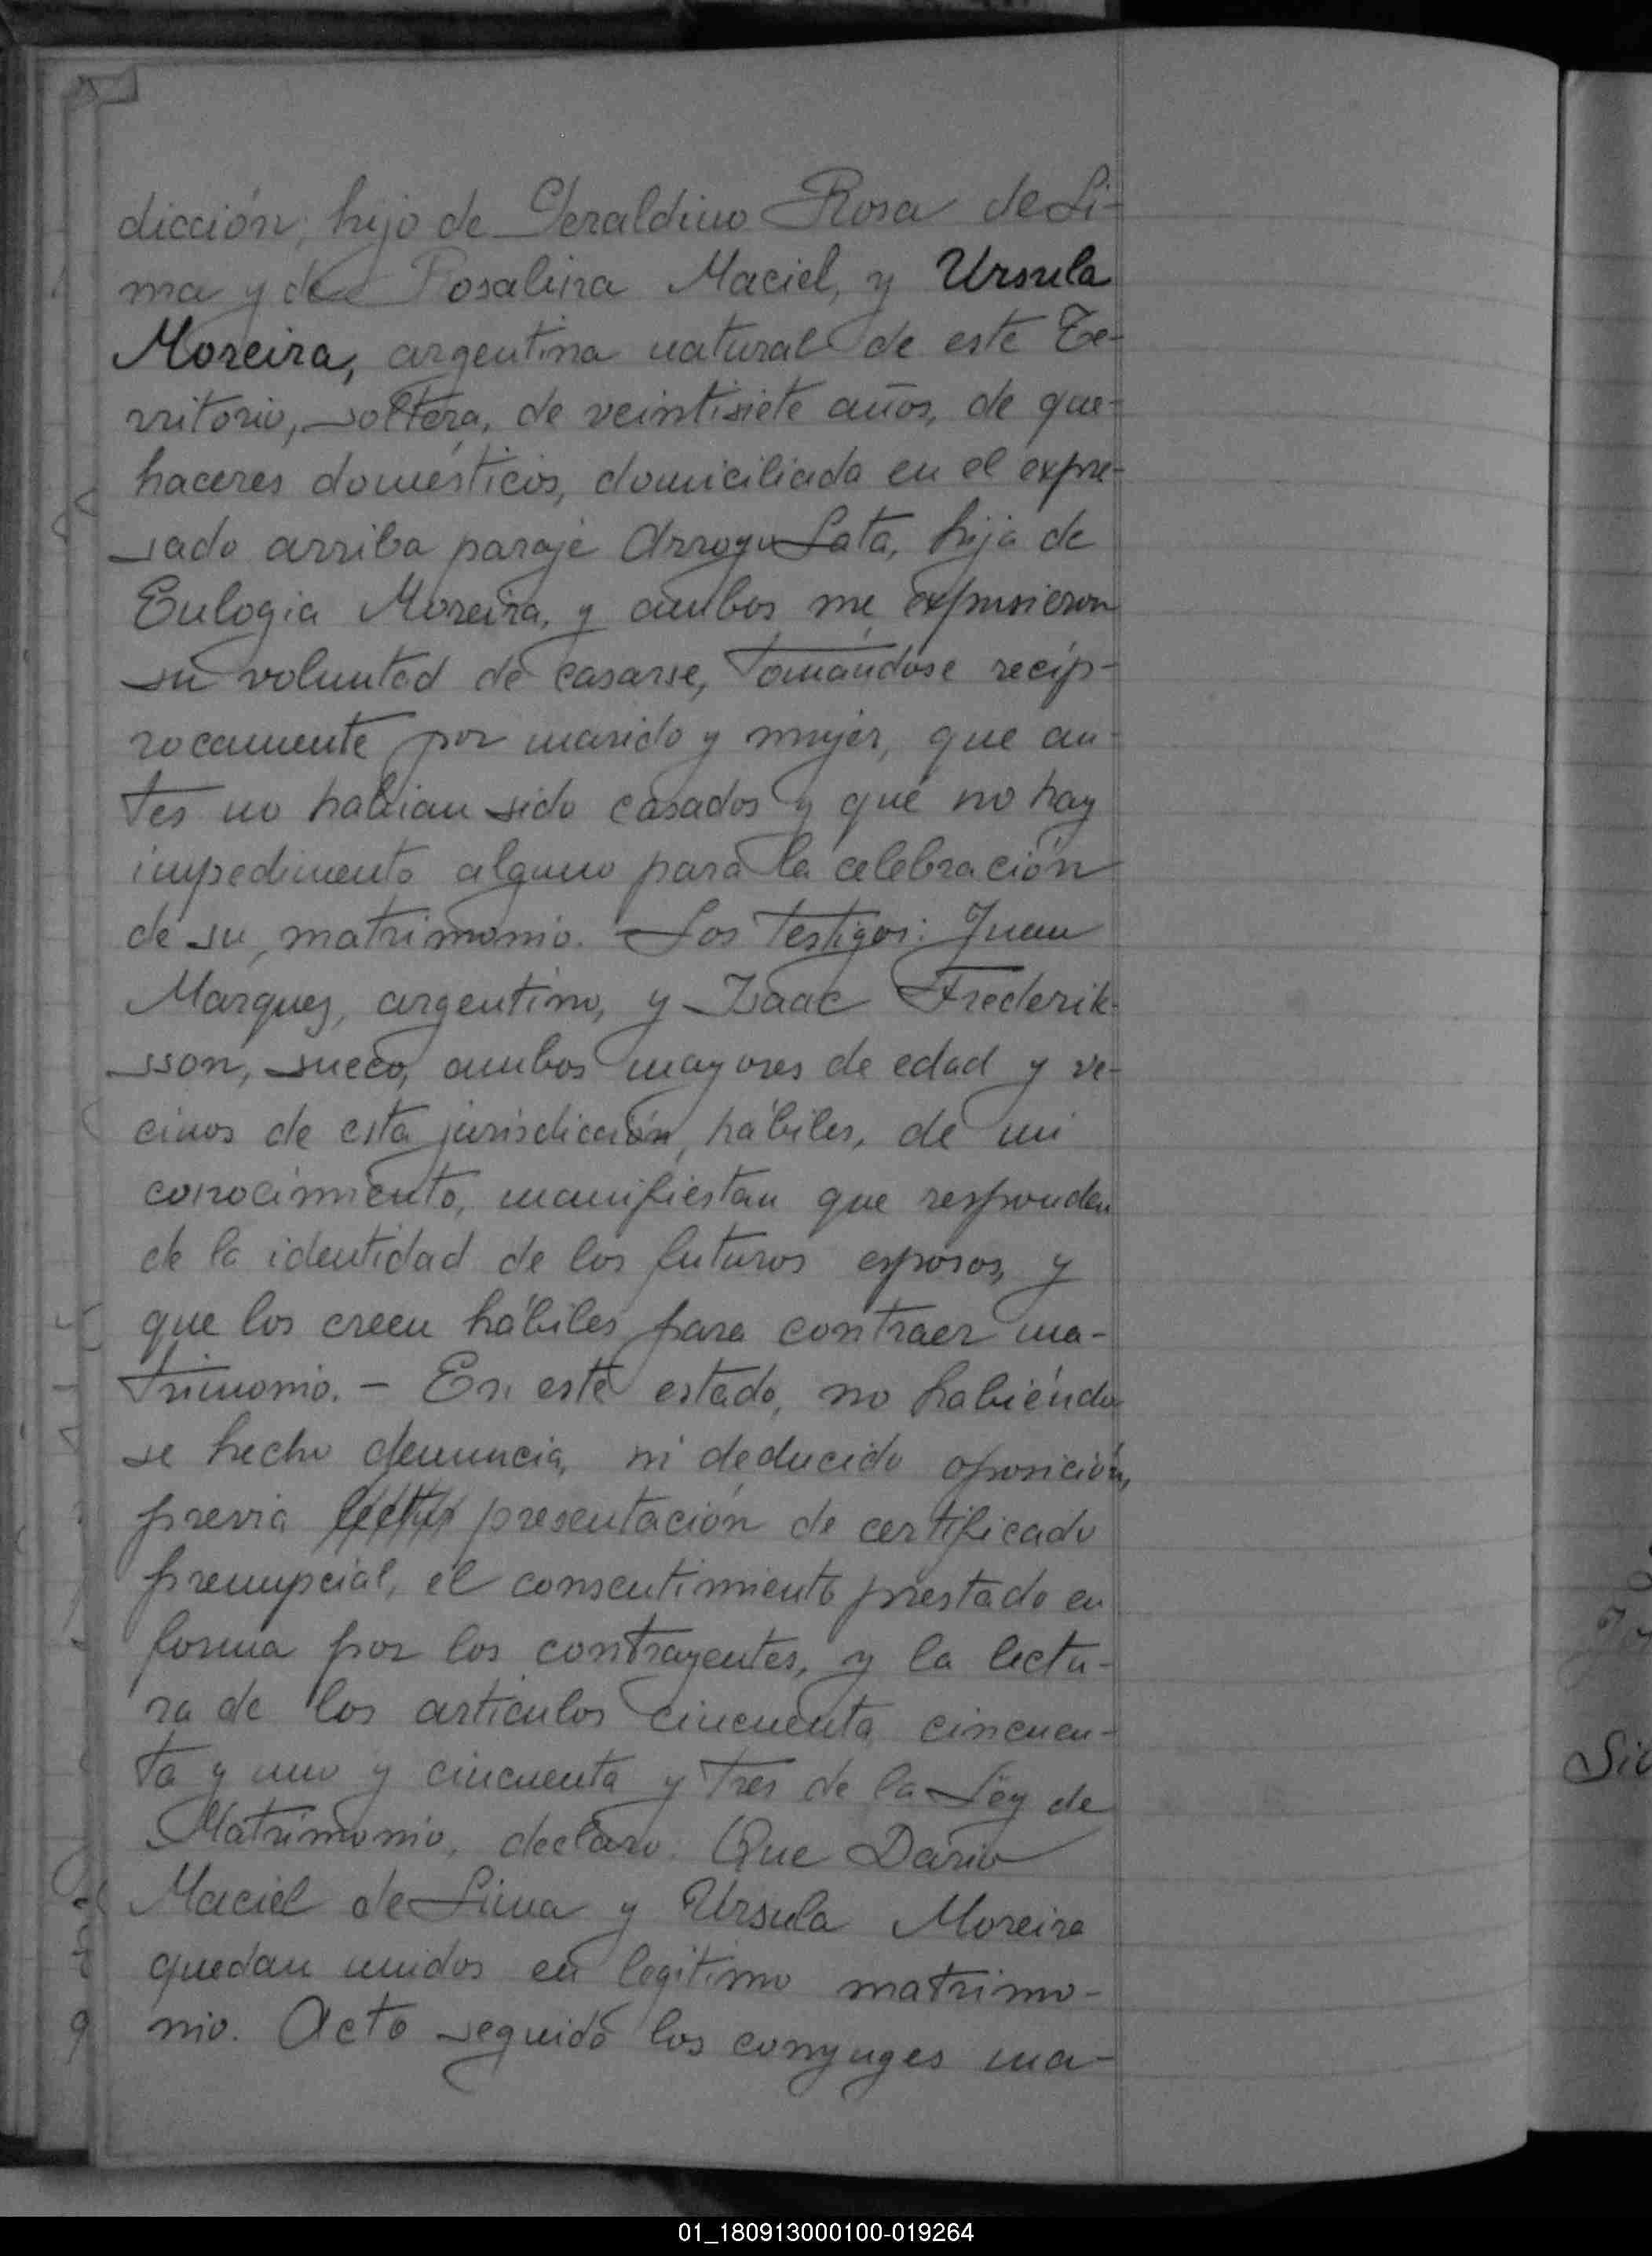 dicción, hijo de Geraldino Rosa de Li-
ma y de Rosalina Maciel, y Ursula
Moreira, argentina natural de este Te-
rritorio, soltera, de veintisiete años, de que-
haceres domésticos, domiciliada en el expre-
sado arriba paraje Arroyo Lata, hija de
Eulogia Moreira, y ambos me expusieron
su voluntad de casarse, tomándose recíp-
rocamente por marido y mujer, que an-
tes no habian sido casados y que no hay
impedimento alguno para la celebración
de su matrimonio. Los testigos: Juan
Marquez, argentino, y Isaac Frederik-
sson, sueco, ambos mayores de edad y ve-
cinos de esta jurisdicción, hábiles, de mi
conocimiento, manifiestan que responden
de la identidad de los futuros esposos, y
que los creen hábiles para contraer ma-
trimonio. – En este estado, no habiéndo
se hecho denuncia, ni deducido oposición,
previa presentación de certificado
prenupcial, el consentimiento prestado en
forma por los contrayentes, y la lectu-
ra de los artículos cincuenta, cincuen-
ta y uno y cincuenta y tres de la Ley de
Matrimonio, declaro. Que Dario
Maciel de Lima y Ursula Moreira
quedan unidos en legítimo matrimo-
nio. Acto seguido los conyuges ma-
01_180913000100-019264